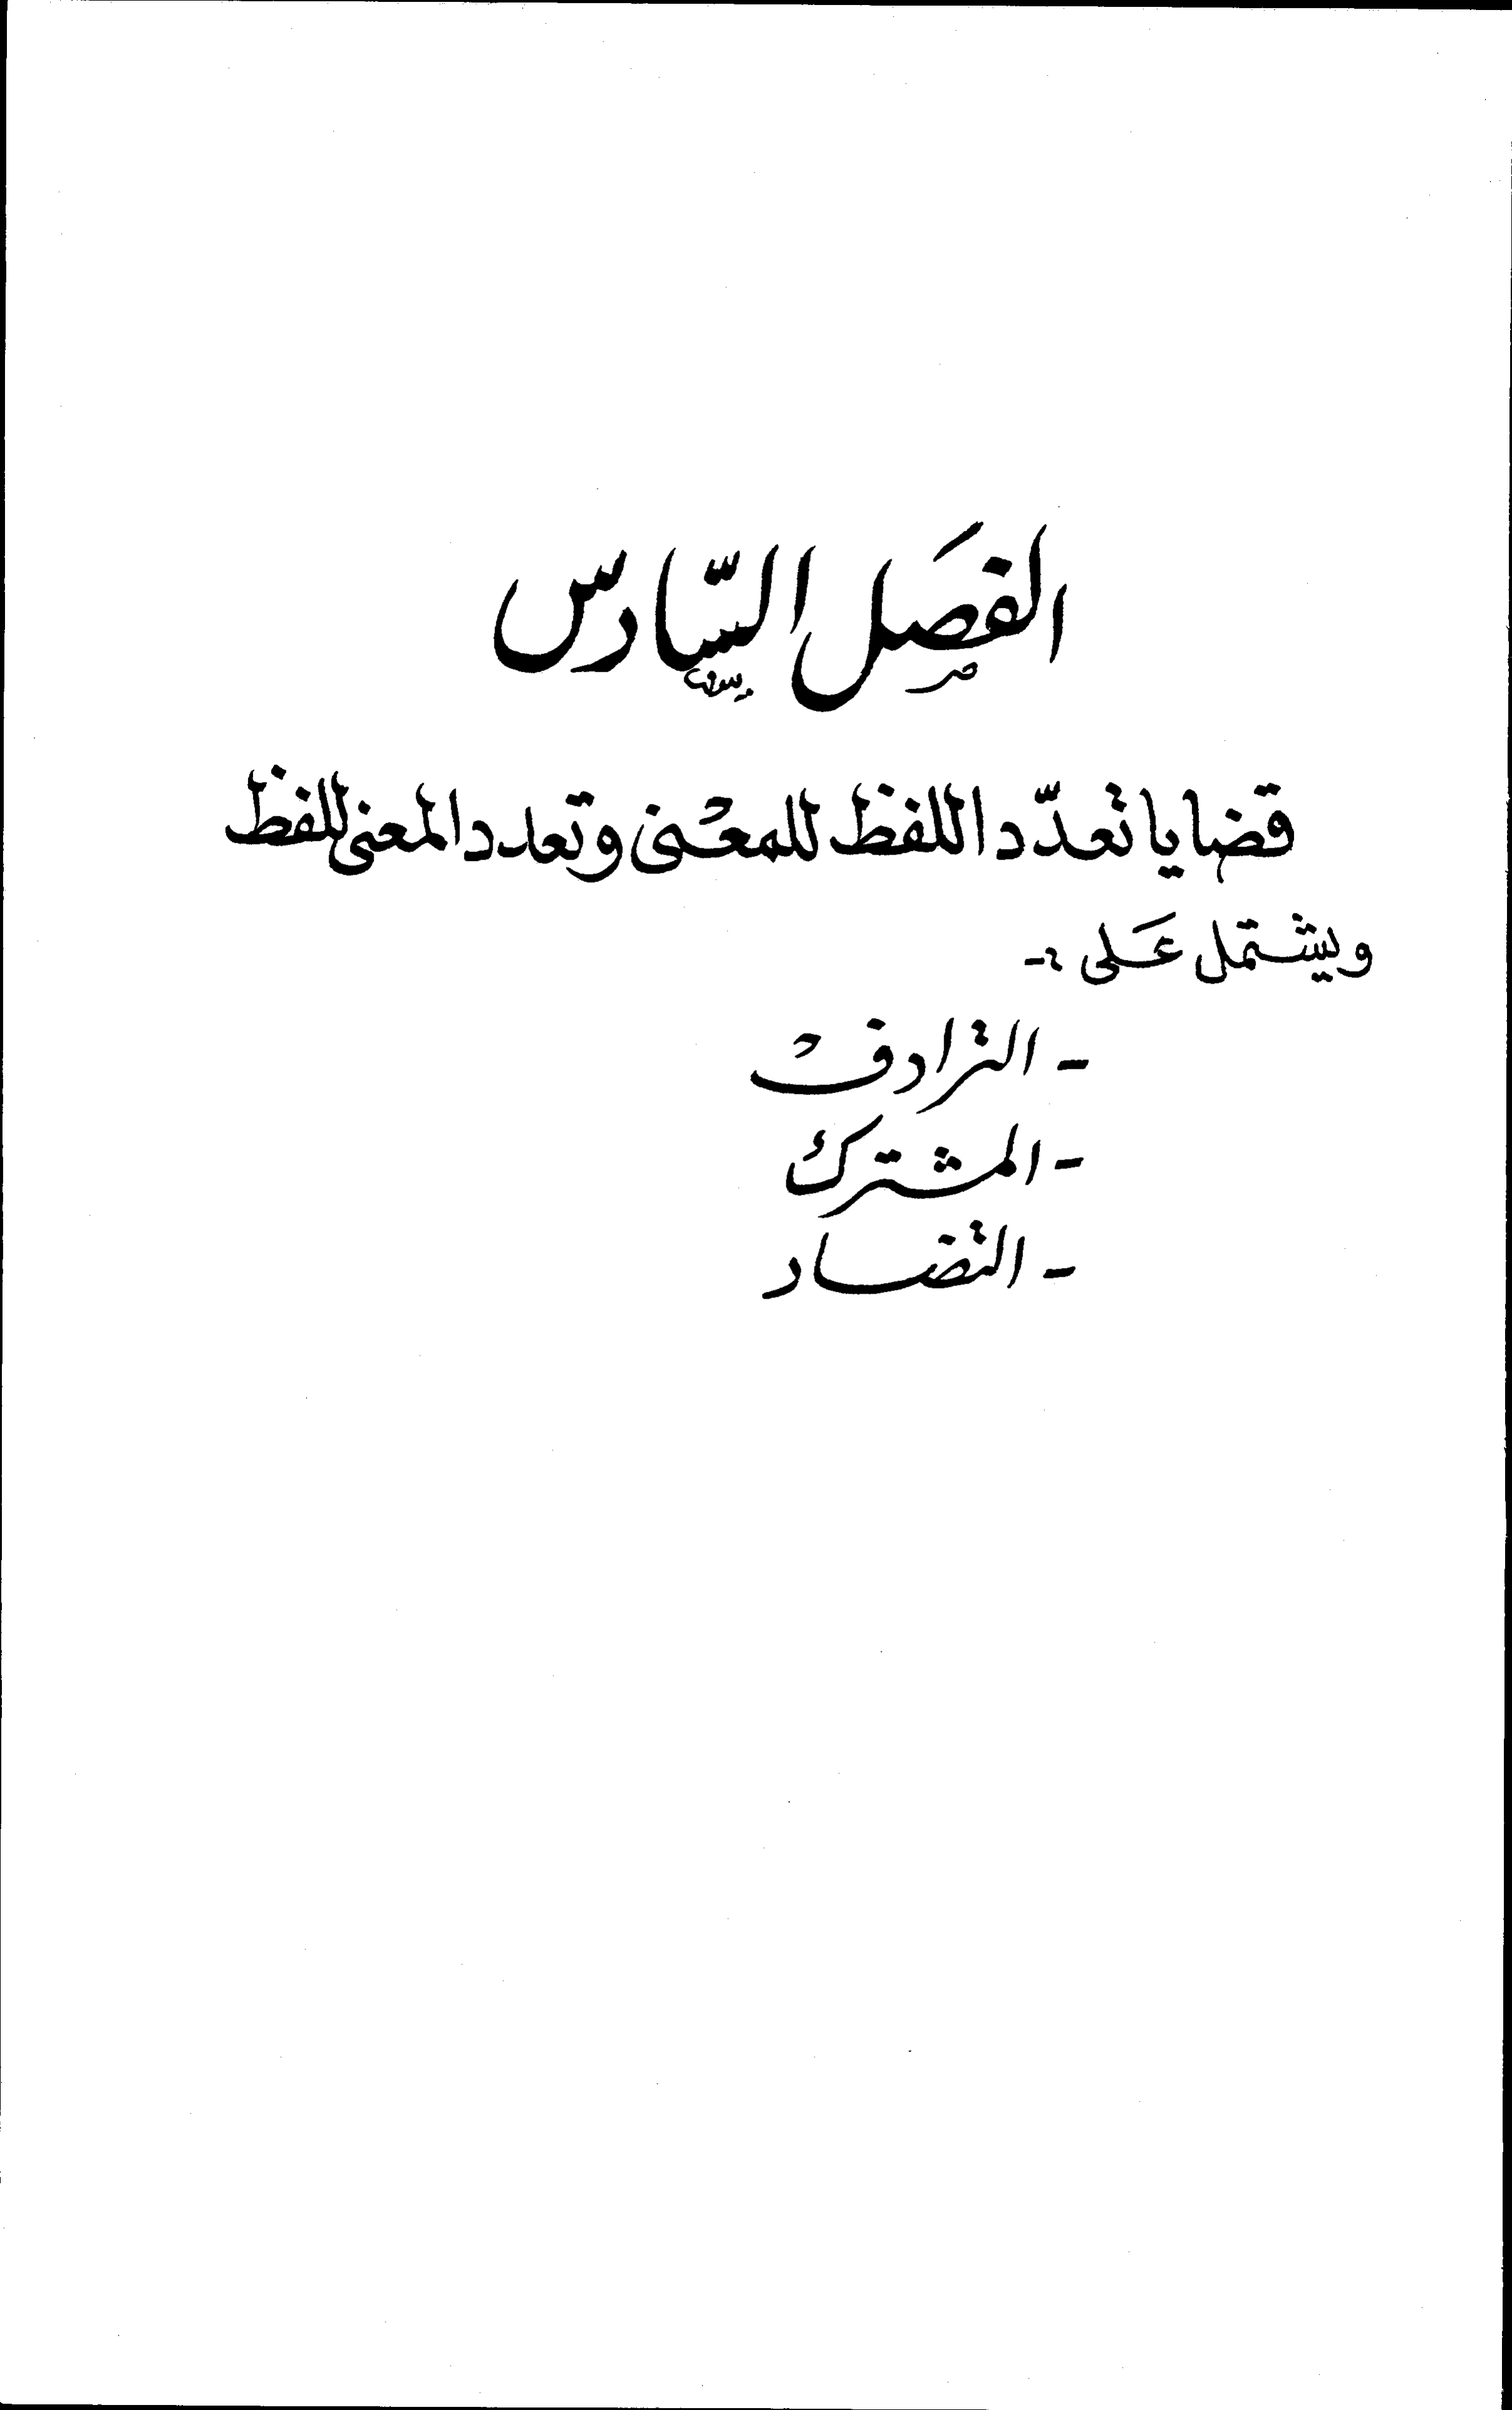 الفصَل السّادس
قضايا تعدّد اللفظ للمعنى وتعدد المعنى للفظ
ويشتمل عَلى :-
- الترادف
- المشترك
- التضاد